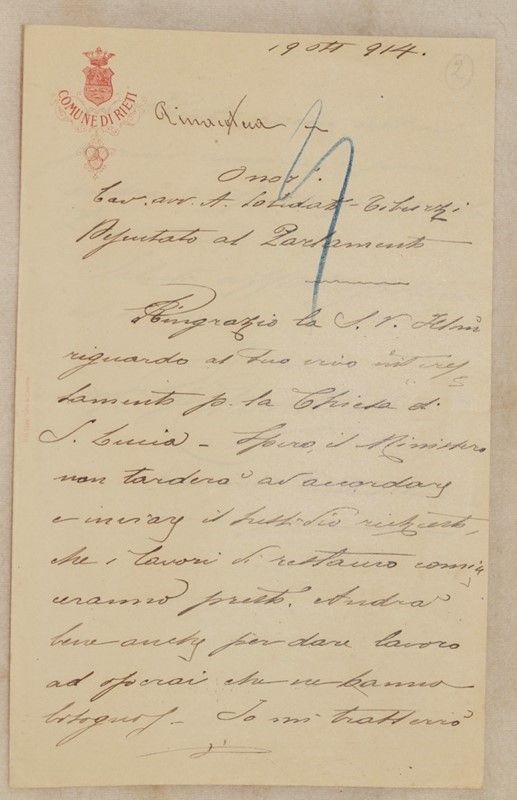 19 ott 914.
2
COMUNE DI RIETI
Onor.
Cav. avv. A. Solidati-Tiburzi
Deputato al Parlamento
Ringrazio la S. V. Ill.ma
riguardo al suo vivo interes
samento p. la Chiesa di
S. Lucia - Spero, il Ministero
non tarderà ad accordare
e inviare il sussidio richiesto,
che i lavori di restauro comin
ceranno presto. Andrà
bene anche per dare lavoro
ad operai che ne hanno
bisogno - Io mi tratterrò